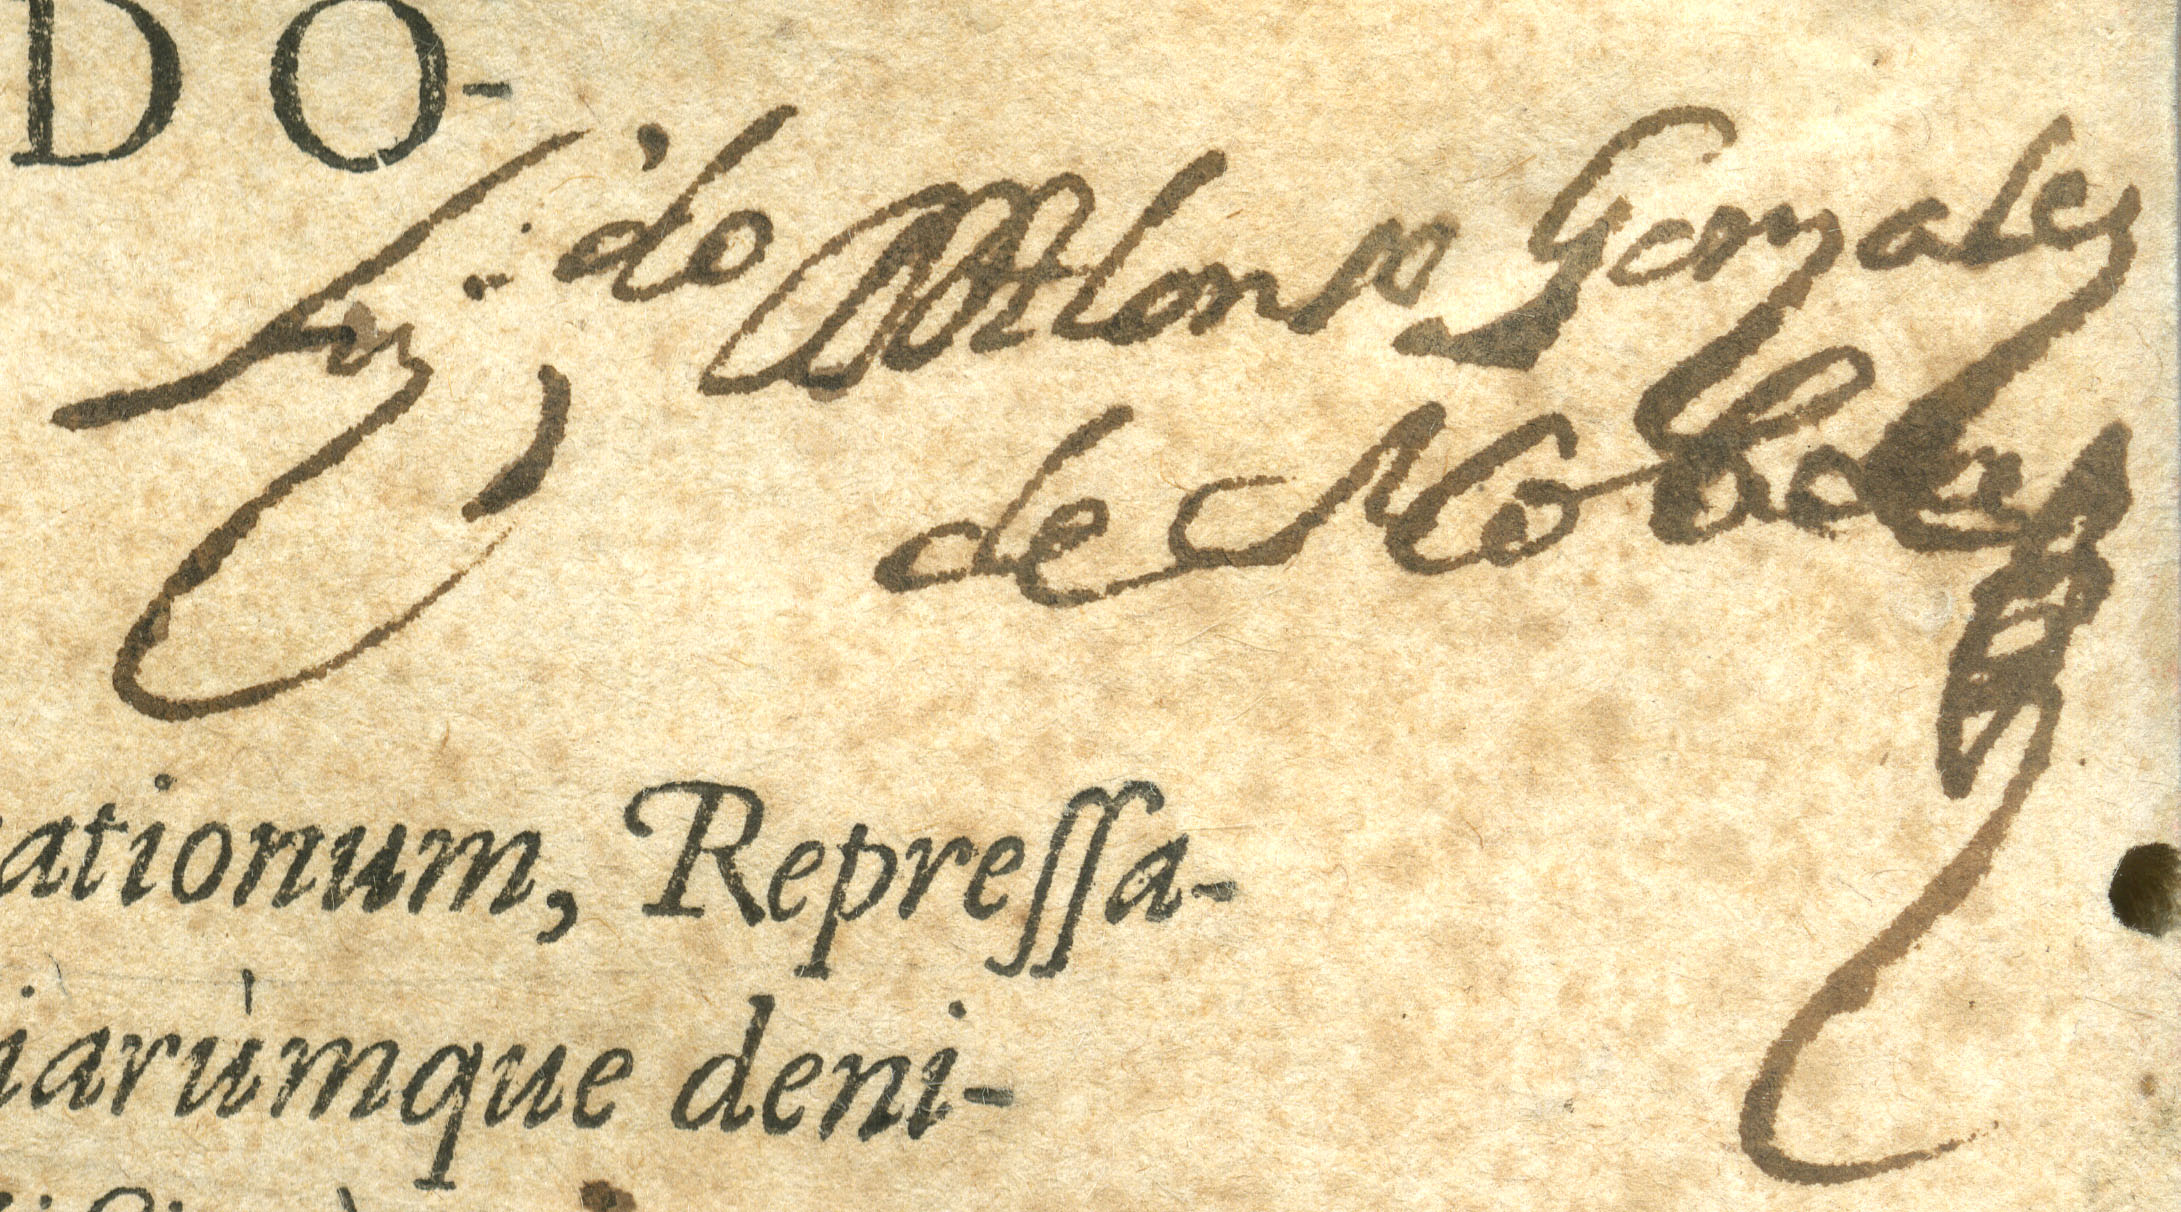 DO-
fuj de Alonso Gonzales
de
ationum, Repreſſa-
iarùmque deni-